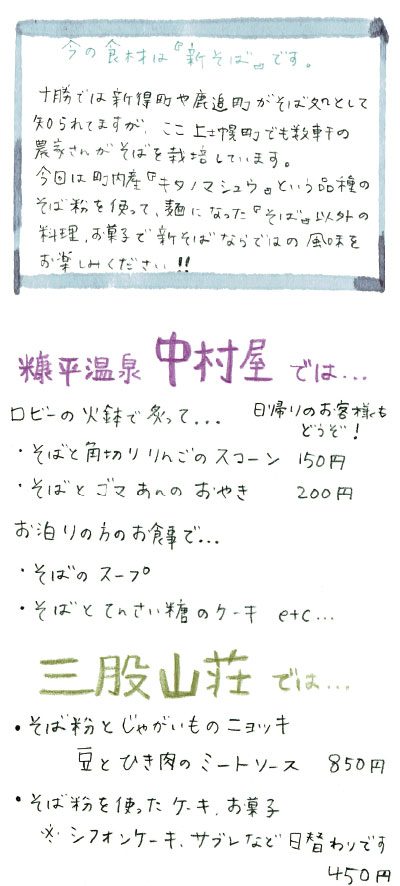 今の食材は『新そば』です。
十勝では新得町や鹿追町がそば処として
知られてますが、ここ上士幌町でも数軒の
農家さんがそばを栽培しています。
今回は町内産『キタノマシュウ』という品種の
そば粉を使って、麺になった『そば』以外の
料理、お菓子で新そばならではの風味を
お楽しみください!!
糠平温泉 中村屋 では...
ロビーの火鉢で炙って...
日帰りのお客様も
どうぞ!
・そばと角切りりんごのスコーン 150円
・そばとゴマあんのおやき 200円
お泊りの方のお食事で...
・そばのスープ
・そばとてんさい糖のケーキ etc...
三股山荘 では...
・そば粉とじゃがいものニョッキ
豆とひき肉のミートソース 850円
・そば粉を使ったケーキ、お菓子
※ シフォンケーキ、サブレなど日替わりです
450円